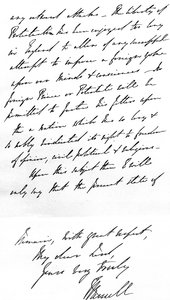 any outward attacks. The liberty of
Protestantism has been enjoyed too long
in England to allow of any successful
attempt to impose a foreign yoke
upon our minds & consciences. No
foreign Prince or Potentate will be
permitted to fasten his fetters upon
a nation which has so long &
so nobly vindicated its right to freedom
of opinion, civil, political & religious.
Upon this subject then I will
only say that the present state of
Remain, with great respect,
My dear Lord,
Yours very truly
J Russell